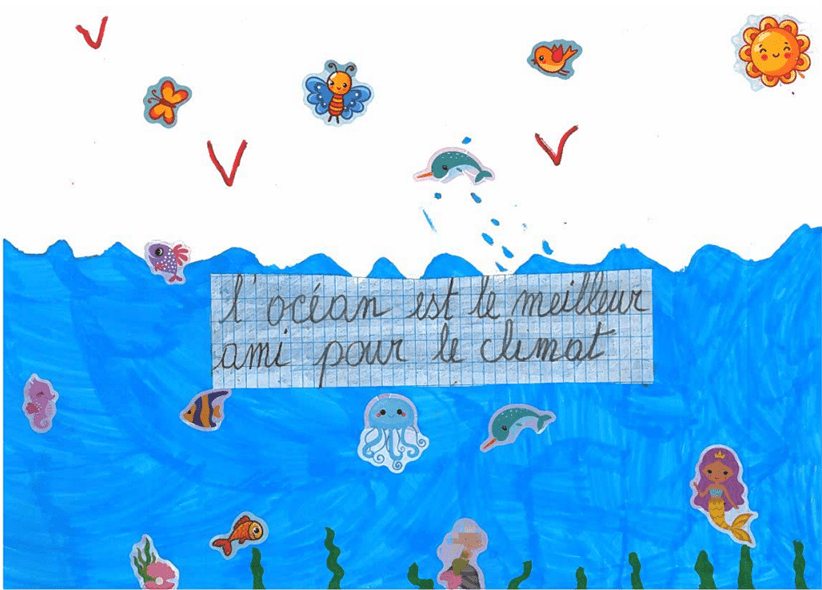 l'océan est le meilleur
ami pour le climat